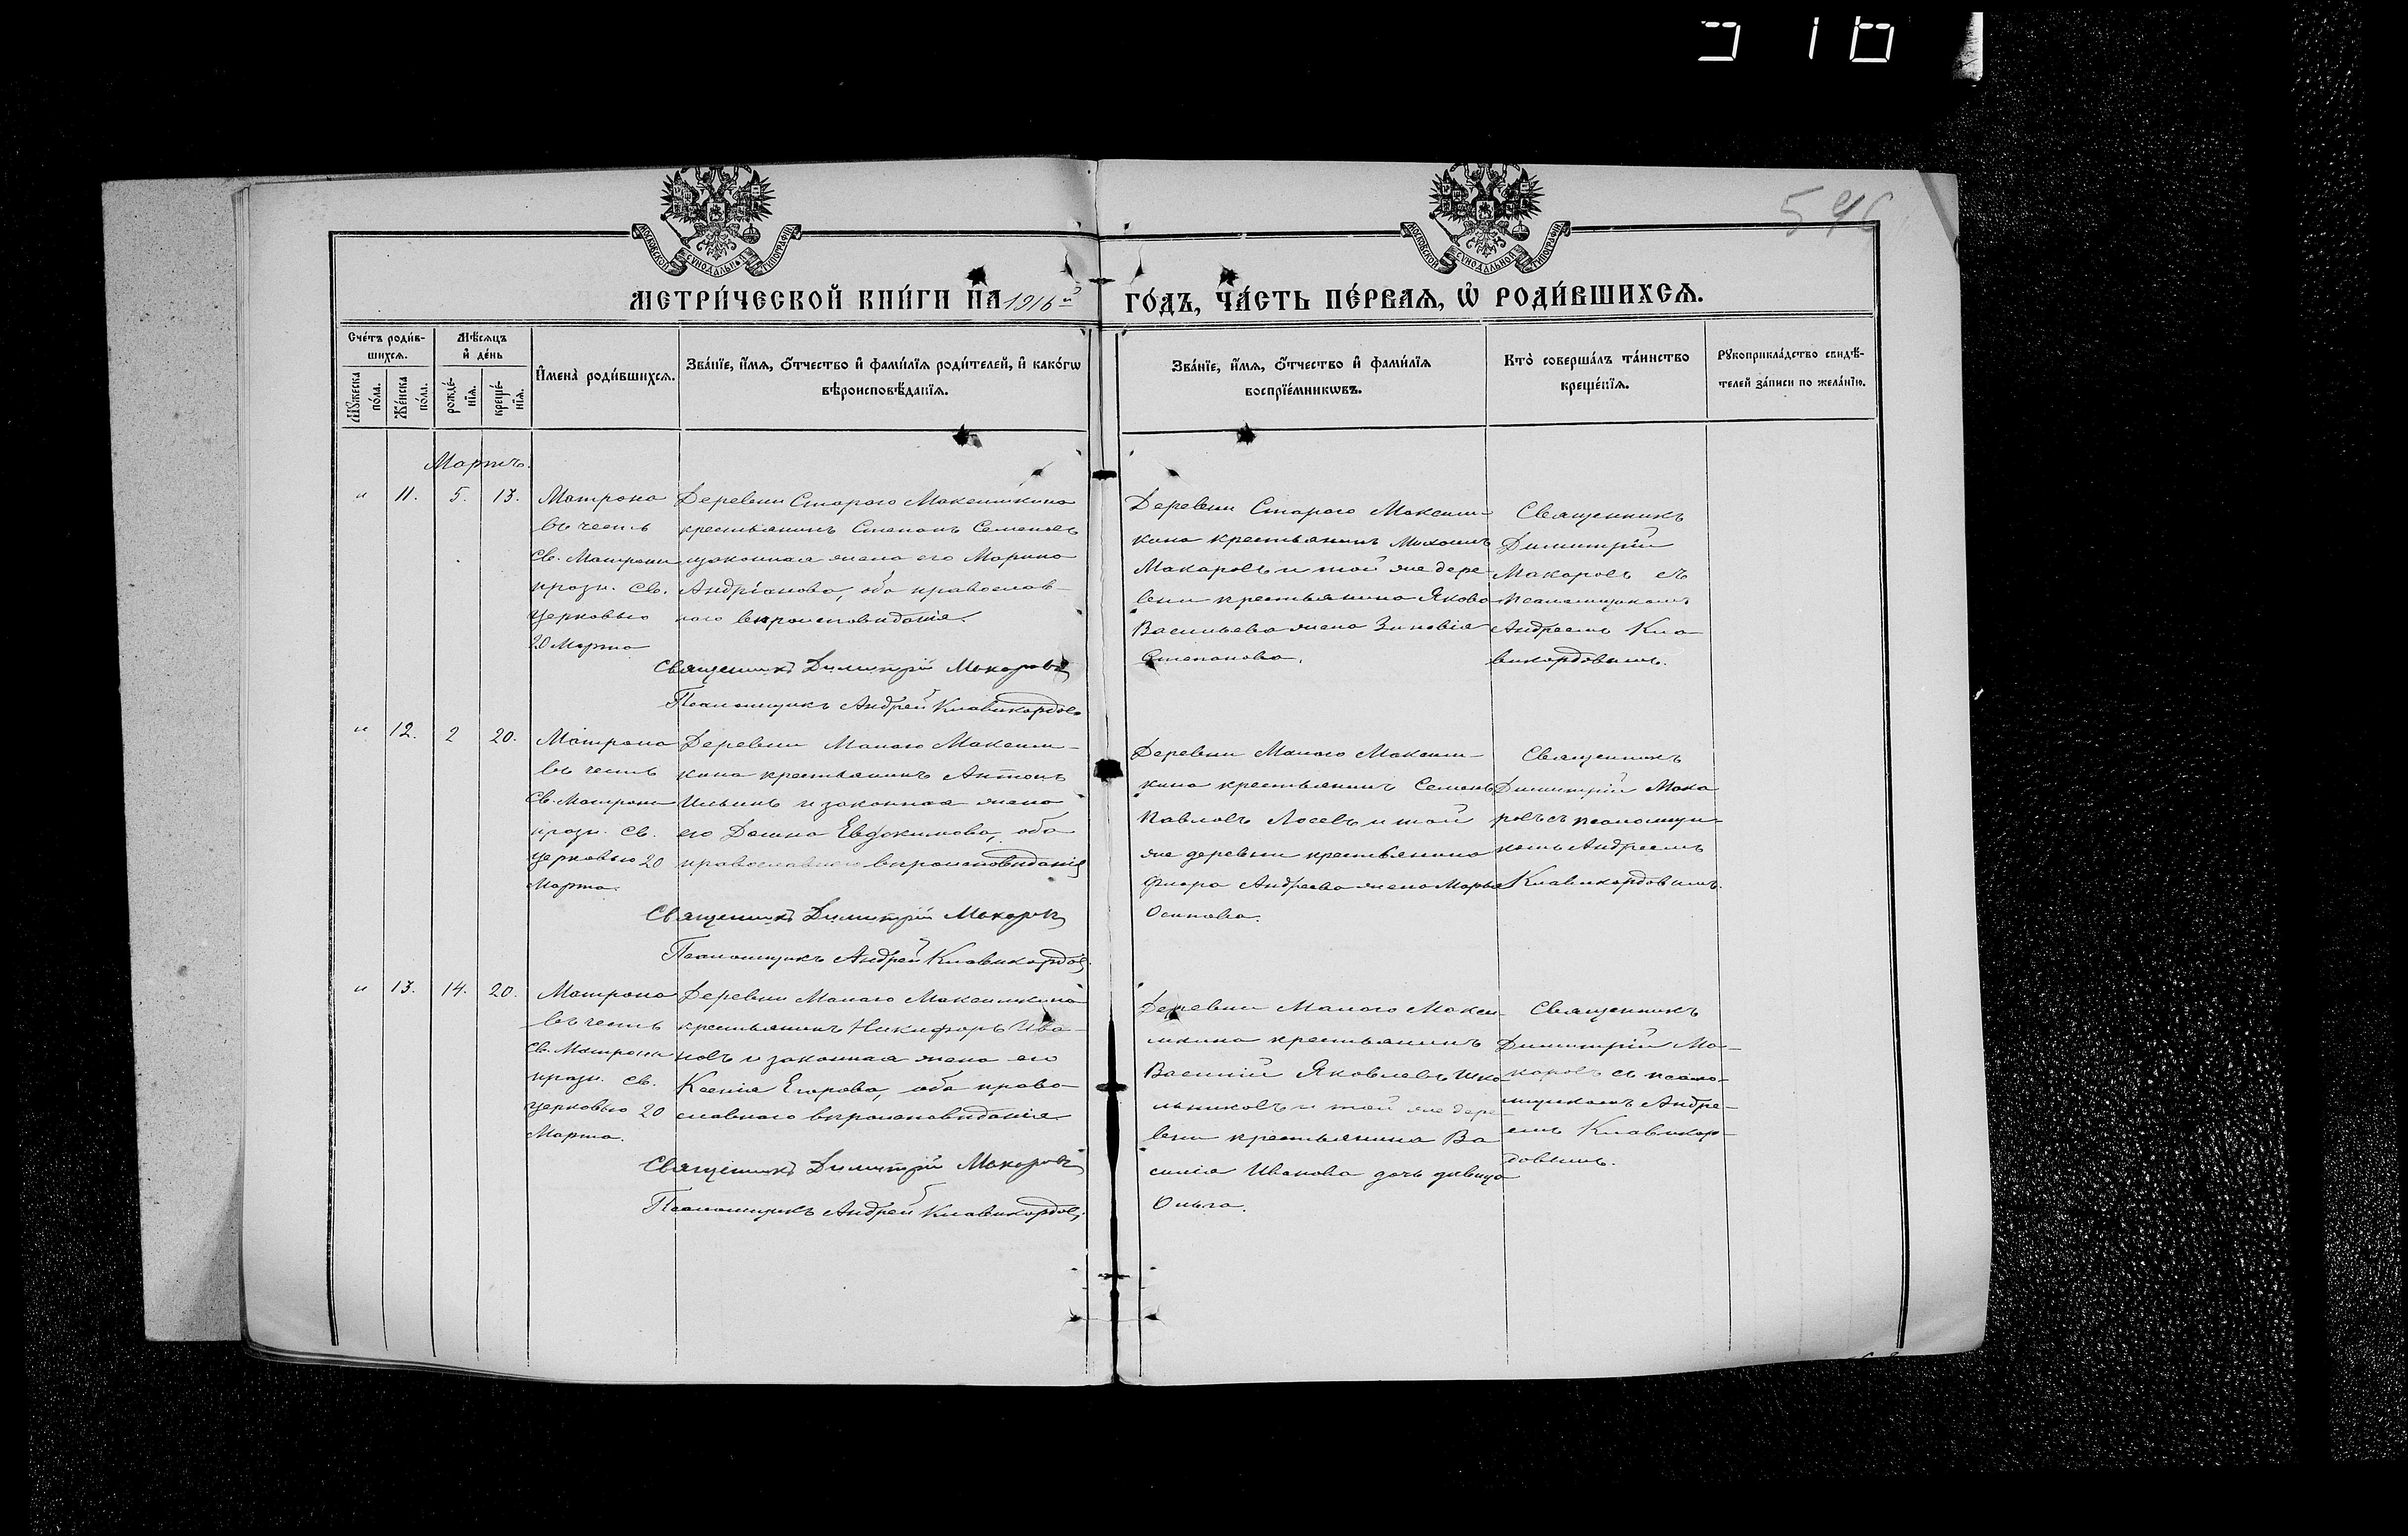 596
МОСКОВСКОЙ СѴНОДАЛЬНОЙ ТИПОГРАФІИ
МОСКОВСКОЙ СѴНОДАЛЬНОЙ ТИПОГРАФІИ
МЕТРИ́ЧЕСКОЙ КНИ́ГИ НА 1916й ГО́ДЪ, ЧА́СТЬ ПЕ́РВАЯ, Ѡ РОДИ́ВШИХСЯ.
Сче́тъ роди́в-
шихся.
Мѣ́сяцъ
и де́нь
Мꙋ́жеска
по́ла.
Же́нска
по́ла.
рожде́-
нїя.
креще́-
нїя.
Имена̀ роди́вшихся.
Зва́нїе, и́мя, ѻ́тчество и фами́лїя роди́телей, и како́гѡ
вѣроисповѣ́данїя.
Зва́нїе, и́мя, ѻ́тчество и фами́лїя
воспрїе́мникѡвъ.
Кто̀ соверша́лъ та́инство
креще́нїя.
Рꙋкоприкла́дство свидѣ́-
телей за́писи по жела́нїю.
Мартъ.
" 11. 5. 13.
Матрона
въ честь
Св. Матроны
празн. Св.
Церковью
20 Марта
Деревни Стараго Максимкина
крестьянинъ Степанъ Семеновъ
и законная жена его Марина
Андріанова, оба православ-
наго вѣроисповѣданія.
Священникъ Димитрій Макаровъ
Псаломщикъ Андрей Клавикордовъ
Деревни Стараго Максим-
кина крестьянинъ
Макаровъ и той же дере-
вни крестьянина Якова
Васильева жена Зиновія
Степанова.
Священникъ
Димитрій
Макаровъ съ
псаломщикомъ
Андреемъ Кла-
викордовымъ.
" 12. 2 20.
Матрона
въ честь
Св. Матроны
празн. Св.
Церковью 20
Марта.
Деревни Малаго Максим-
кина крестьянинъ Антонъ
Ильинъ и законная жена
его Домна Евдокимова, оба
православнаго вѣроисповѣданія
Священникъ Димитрій Макаровъ
Псаломщикъ Андрей Клавикордовъ
Деревни Малаго Максим-
кина крестьянинъ Семенъ
Павловъ Лосевъ и той
же деревни крестьянина
Андреева жена Марья
Осипова.
Священникъ
Димитрій Мака
ровъ съ псаломщи-
комъ Андреемъ
Клавикордовымъ.
" 13. 14. 20.
Матрона
въ честь
Св. Матроны
празн. Св.
Церковью 20
Марта.
Деревни Малаго Максимкина
крестьянинъ Никифоръ Ива-
новъ и законная жена его
Ксенія Егорова, оба право-
славнаго вѣроисповѣданія
Священникъ Димитрій Макаровъ
Псаломщикъ Андрей Клавикордовъ
Деревни Малаго Макси-
мкина крестьянинъ
Василій Яковлевъ Шко-
льниковъ и той же дере
вни крестьянина Ва
силія Иванова дочь дѣвица
Ольга.
Священникъ
Димитрій Ма-
каровъ съ псало-
мщикомъ Андре-
емъ Клавикор-
довымъ.